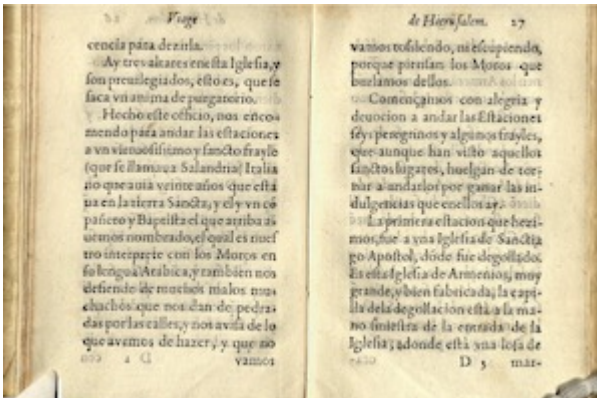 Viage
cencia para dezirla.
Ay tres altares en esta Iglesia, y
son preuilegiados, esto es, que se
saca vn anima de purgatorio.
Hecho este officio, nos enco-
mendo para andar las estaciones
a vn virtuosissimo y sancto frayle
(que se llamaua Salandria) Italia
no que auia veinte años que esta
ua en la tierra Sancta, y el y vn cõ
pañero y Baptista el que arriba a-
uemos nombrado, el qual es nues
tro interprete con los Moros en
su lengua Arabica, y tambien nos
defiende de muchos malos mu-
chachos que nos dan de pedra-
das por las calles, y nos auisa de lo
que avemos de hazer, y que no
D 2
vamos
de Hierusalem. 27
vamos tosiendo, ni escupiendo,
porque piensan los Moros que
burlamos dellos.
Començamos con alegria y
deuocion a andar las Estaciones
seys peregrinos y algunos frayles,
que aunque han visto aquellos
sanctos lugares, huelgan de tor-
nar a andarlos por ganar las in-
dulgencias que en ellos ay.
La primera estacion que hezi-
mos, fue a vna Iglesia de Sanctia
go Apostol, dõde fue degollado.
Es esta Iglesia de Armenios, muy
grande, y bien fabricada, la capi-
lla de la degollacion està a la ma-
no siniestra de la entrada de la
Iglesia, adonde està vna losa de
D 3 mar-